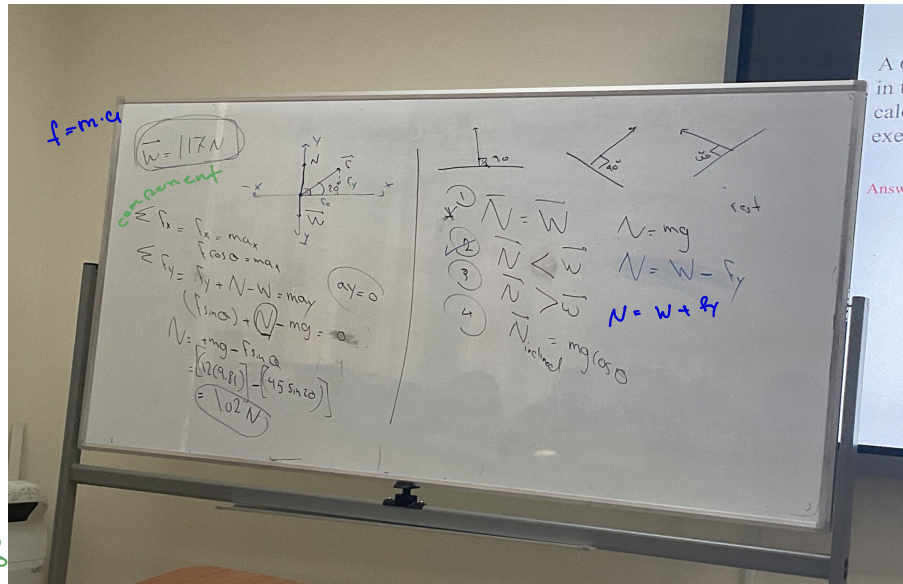 f=m.a
W = 117N
component
Y
N
F
-x
20°
Fy
x
Fx
W
-y
Σ Fx = Fx = max
Fcosθ = max
Σ Fy = Fy + N - W = may
ay=0
(Fsinθ) + N - mg = 0
N = +mg - Fsinθ
= [12(9.81)] - [45 sin 20]
= 102 N
90
90°
90°
rest
1 N = W
N = mg
2 N < W
N = W - Fy
3 N > W
N = W + fy
4 N inclined = mg cosθ
A
in t
calc
exe
Answ